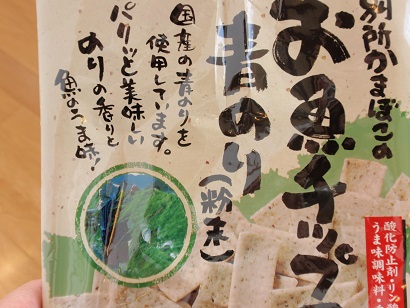 別所かまぼこの
お魚チップ
青のり(粉末)
国産の青のりを
使用しています。
パリッと美味しい
のりの香りと
魚のうま味!
酸化防止剤・リン
うま味調味料・